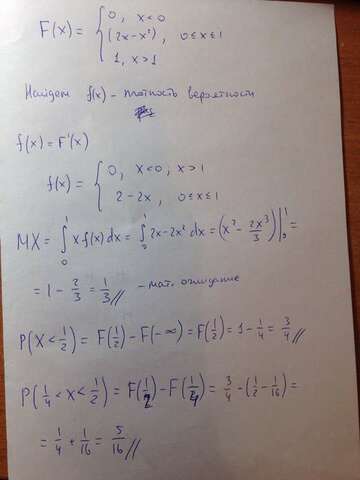 F(x) = { 0, x<0
(2x-x²), 0≤x≤1
1, x>1
Найдем f(x) - плотность вероятности
f(x) = F'(x)
f(x) = { 0, x<0; x>1
2-2x, 0≤x≤1
MX = ∫₀¹ x f(x) dx = ∫₀¹ 2x-2x² dx = (x² - 2x³/3)|₀¹ =
= 1 - 2/3 = 1/3 // - мат. ожидание
P(X < 1/2) = F(1/2) - F(-∞) = F(1/2) = 1 - 1/4 = 3/4 //
P(1/4 < x < 1/2) = F(1/2) - F(1/4) = 3/4 - (1/2 - 1/16) =
= 1/4 + 1/16 = 5/16 //